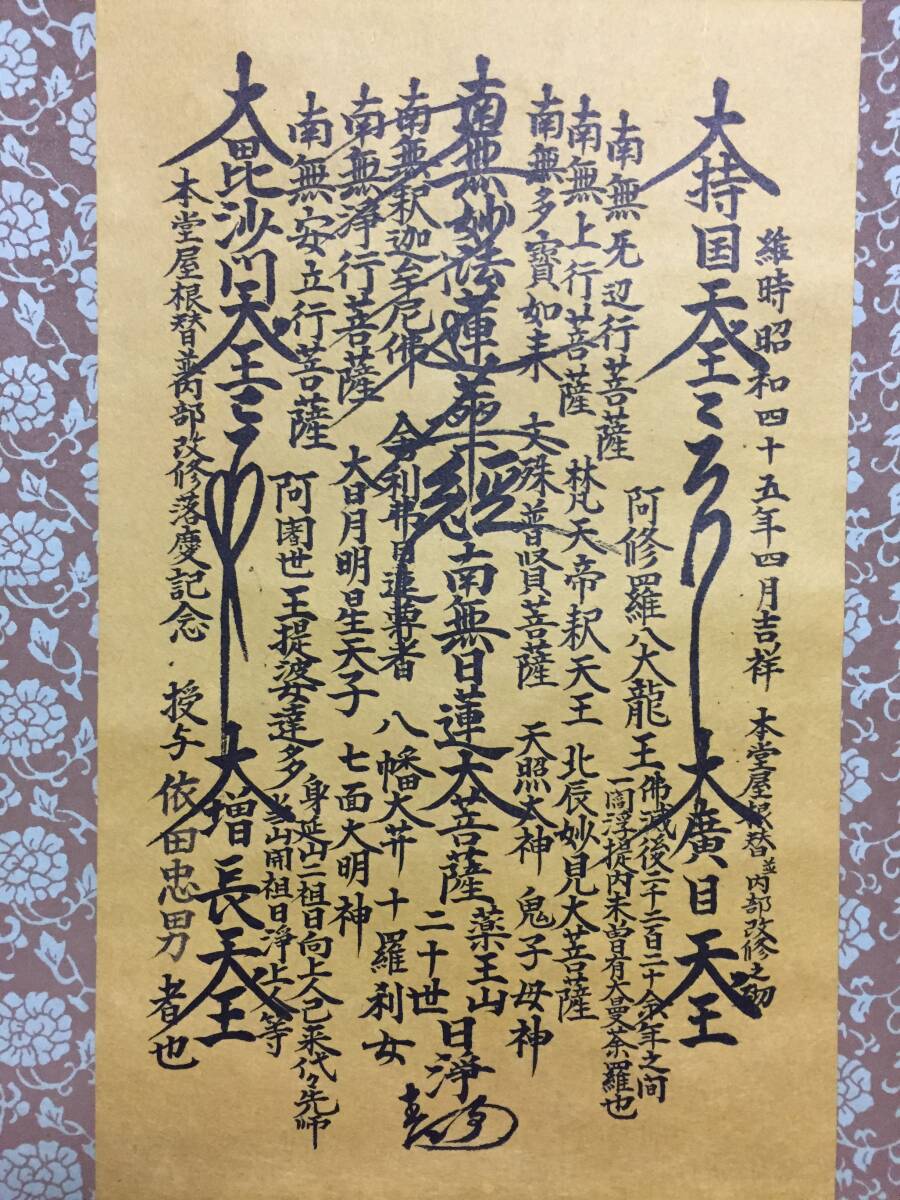 維時昭和四十五年四月吉祥 本堂屋根替並内部改修之砌
大持国天王
大廣目天王
南無无辺行菩薩
阿修羅八大龍王
佛滅後二千二百二十余年之间
一閻浮提内未曽有大曼荼羅也
南無上行菩薩
梵天帝釈天王
北辰妙見大菩薩
南無多寳如来
文殊普賢菩薩
天照太神
鬼子母神
南無妙法蓮華經
南無日蓮大菩薩
薬王山
二十世
日淨
南無釈迦牟尼佛
舎利弗目連尊者
八幡大井
十羅刹女
南無浄行菩薩
大日月明星天子
七面大明神
南無安立行菩薩
阿闍世王提婆達多
身延山二祖日向上人已来代々先师
当山開祖日淨上人等
大毘沙门天王
大増長天王
本堂屋根替並内部改修落慶記念
授与 依田忠男 者也